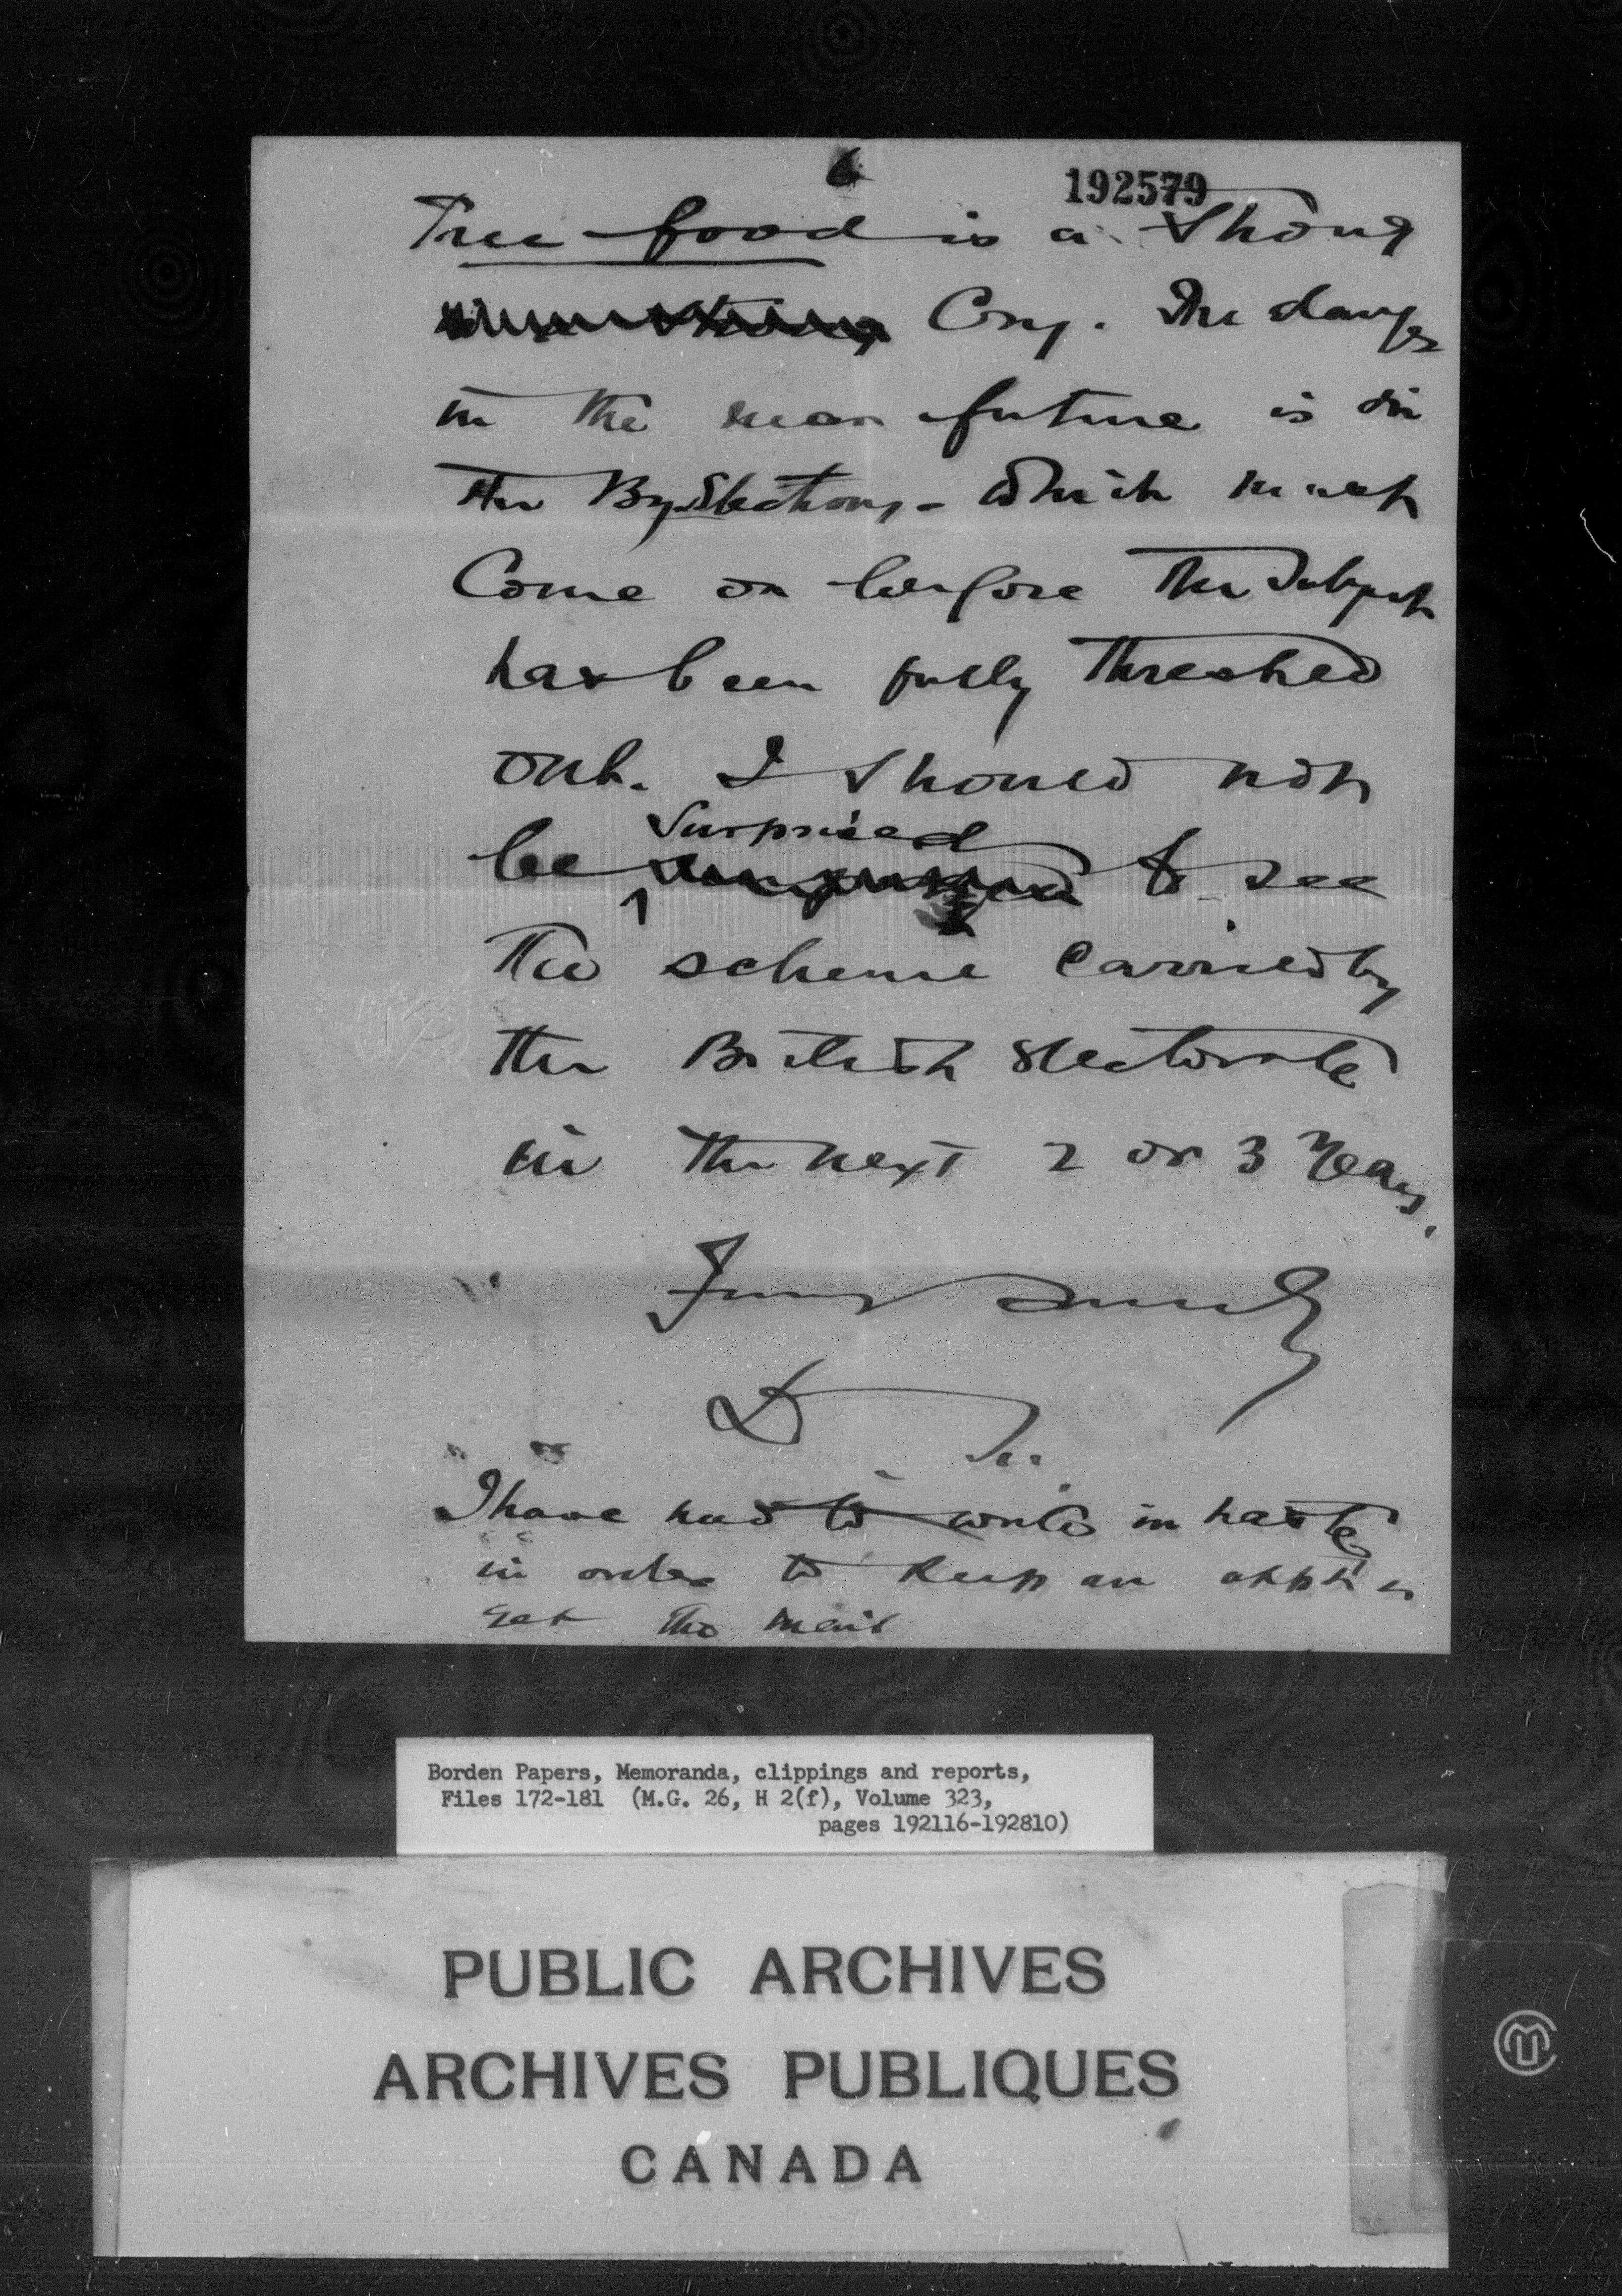 6
192579
Free food is a strong
Cry. The danger
in the near future is in
the By Elections - which must
Come on before the Subject
has been fully threshed
out. I should not
Surprised
be to see
the scheme carried by
the British Electorate
in the next 2 or 3 Years.
I have had to write in haste
in order to keep an
get the mail
Borden Papers, Memoranda, clippings and reports,
Files 172-181 (M.G. 26, H 2(f), Volume 323,
pages 192116-192810)
PUBLIC ARCHIVES
ARCHIVES PUBLIQUES
CANADA